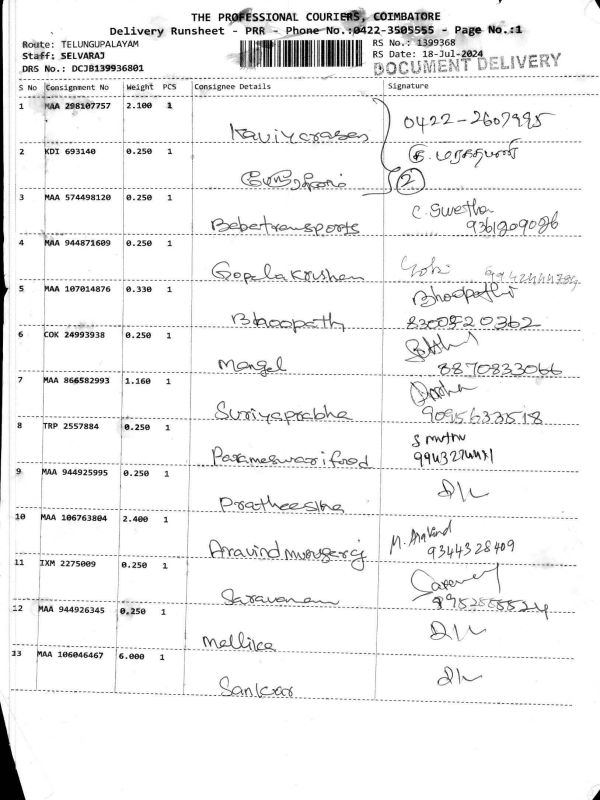 THE PROFESSIONAL COURIERS, COIMBATORE
Delivery Runsheet - PRR - Phone No.:0422-3505555 - Page No.:1
Route: TELUNGUPALAYAM
RS No.: 1399368
Staff: SELVARAJ
RS Date: 18-Jul-2024
DRS No.: DCJB139936801
DOCUMENT DELIVERY
S No Consignment No Weight PCS Consignee Details Signature
1 MAA 298107757 2.100 1
Kaviyarasan 0422-2607995
2 KDI 693140 0.250 1
2
3 MAA 574498120 0.250 1
Bebetransports C. Swetha
9361209086
4 MAA 944871609 0.250 1
Gopalakrushan
5 MAA 107014876 0.330 1
Bhoopath Bhoopathi
6 COK 24993938 0.250 1
Mangal
8870833066
7 MAA 866582993 1.160 1
Suriyaprabha
8 TRP 2557884 0.250 1
Parameswari food
9 MAA 944925995 0.250 1
Pratheesha D/L
10 MAA 106763804 2.400 1
Aravind murugaraj M. Aravind
9344328409
11 IXM 2275009 0.250 1
Saravanan
12 MAA 944926345 0.250 1
Mallika D/L
13 MAA 106046467 6.000 1
Sankar D/L